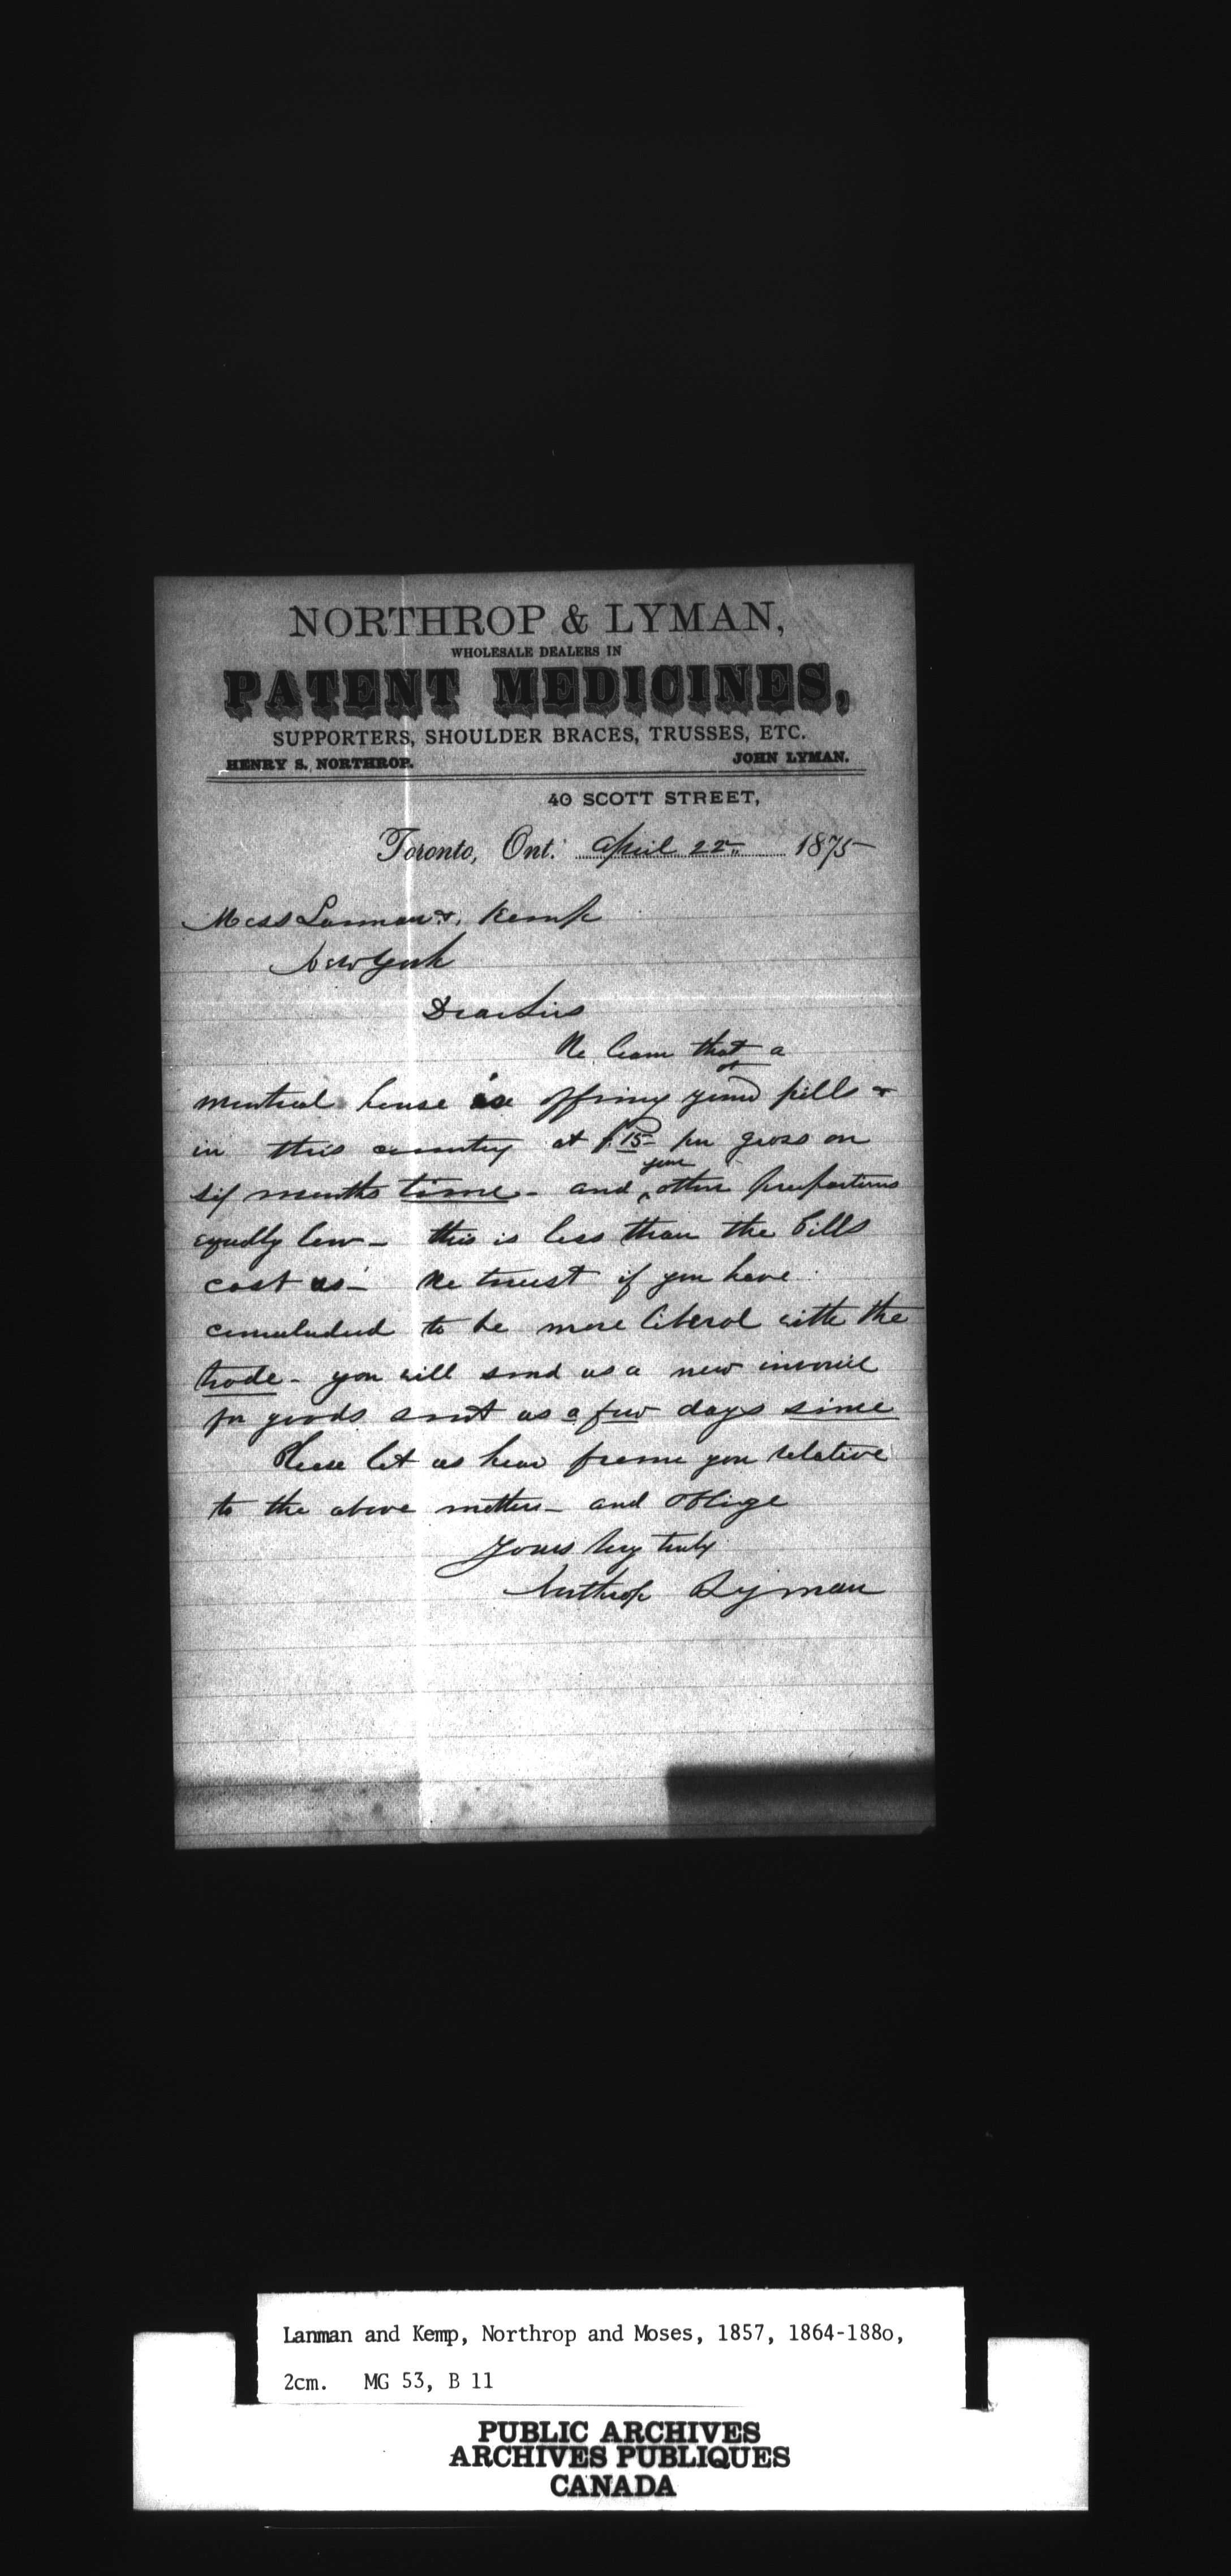 NORTHROP & LYMAN,
WHOLESALE DEALERS IN
PATENT MEDICINES,
SUPPORTERS, SHOULDER BRACES, TRUSSES, ETC.
HENRY S. NORTHROP. JOHN LYMAN.
40 SCOTT STREET,
Toronto, Ont. April 22" 1875
Mess Lanman &. Kemp
New York
Dear Sirs
We learn that a
Montreal house is offering your pills &
in this country at $15 per gross on
six months time - and your other preparations
equally low - this is less than the Pills
cost us - We trust if you have
concluded to be more liberal with the
trade - you will send us a new invoice
for goods sent us a few days since
Please let us hear from you relative
to the above matters - and oblige
Yours very truly
Northrop Lyman
Lanman and Kemp, Northrop and Moses, 1857, 1864-188o,
2cm. MG 53, B 11
PUBLIC ARCHIVES
ARCHIVES PUBLIQUES
CANADA